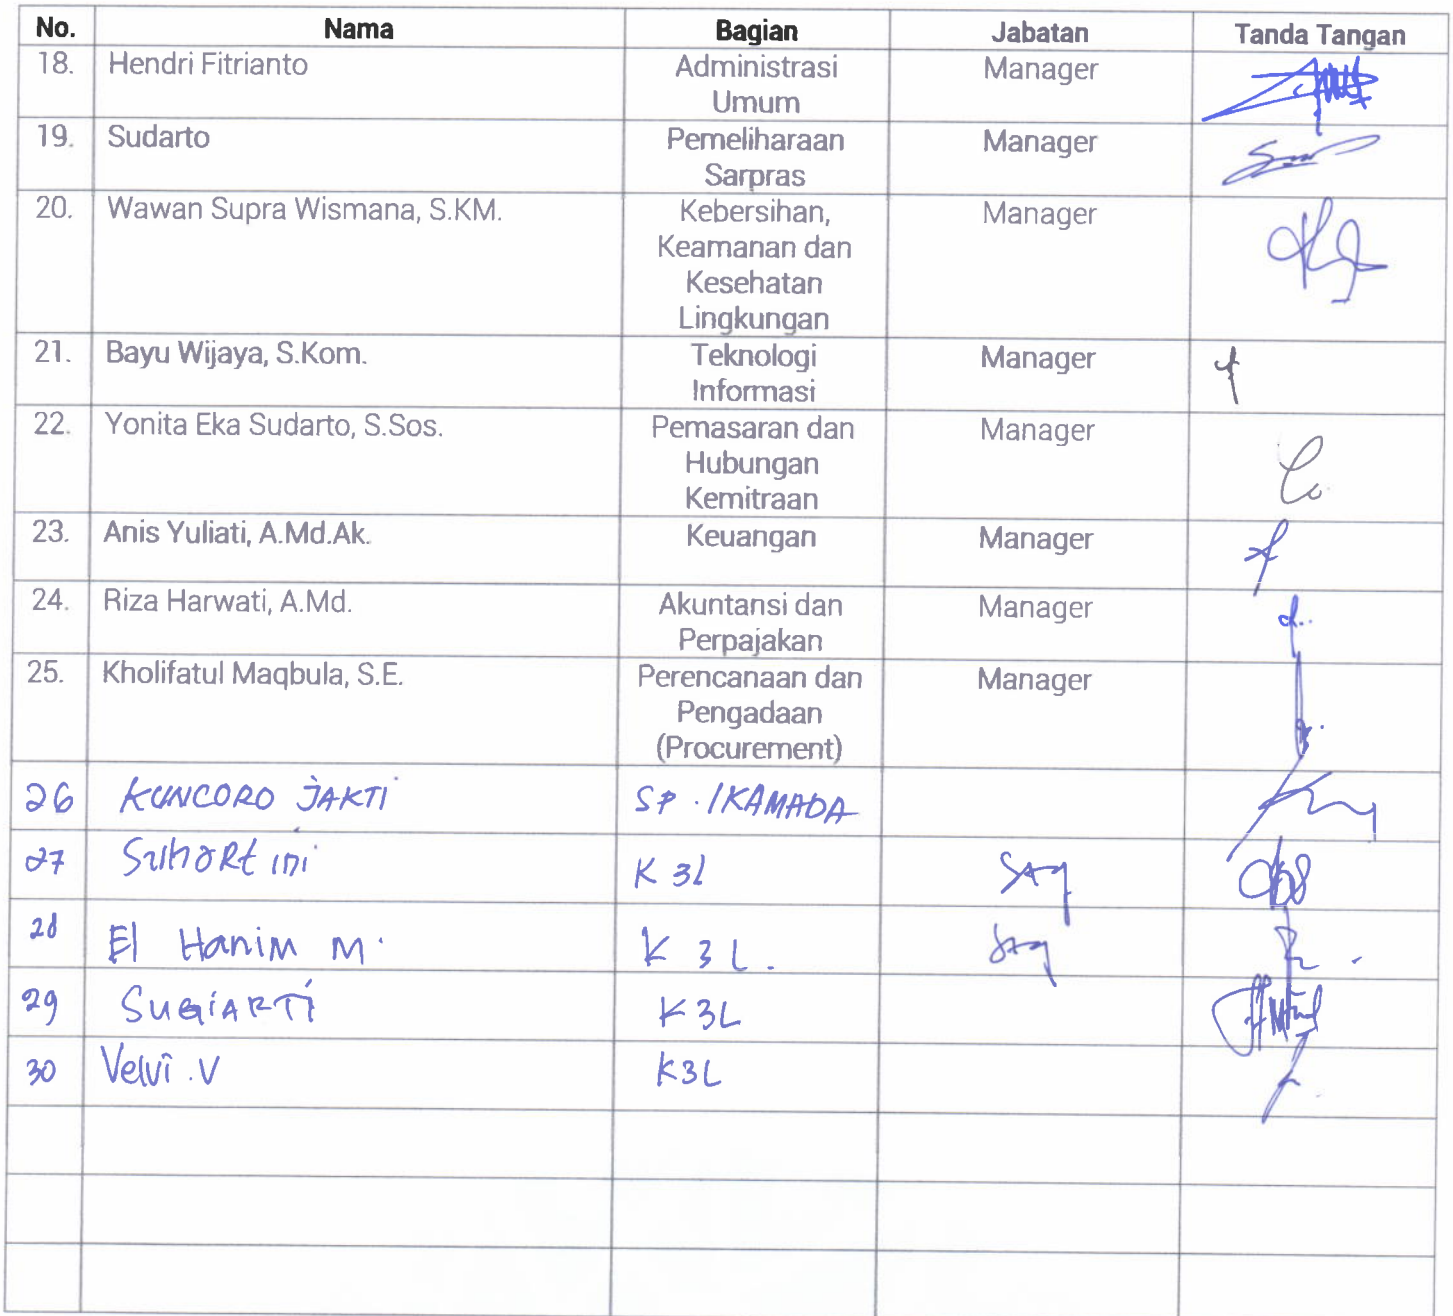 No. Nama Bagian Jabatan Tanda Tangan
18. Hendri Fitrianto Administrasi Manager
Umum
19. Sudarto Pemeliharaan Manager
Sarpras
20. Wawan Supra Wismana, S.KM. Kebersihan, Manager
Keamanan dan
Kesehatan
Lingkungan
21. Bayu Wijaya, S.Kom. Teknologi Manager
Informasi
22. Yonita Eka Sudarto, S.Sos. Pemasaran dan Manager
Hubungan
Kemitraan
23. Anis Yuliati, A.Md.Ak. Keuangan Manager
24. Riza Harwati, A.Md. Akuntansi dan Manager
Perpajakan
25. Kholifatul Maqbula, S.E. Perencanaan dan Manager
Pengadaan
(Procurement)
26 KUNCORO JAKTI SP. IKAMADA
27 Suhartini K3L
28 El Hanim M. K3L.
29 SUGiARTi K3L
30 Velvi .V K3L